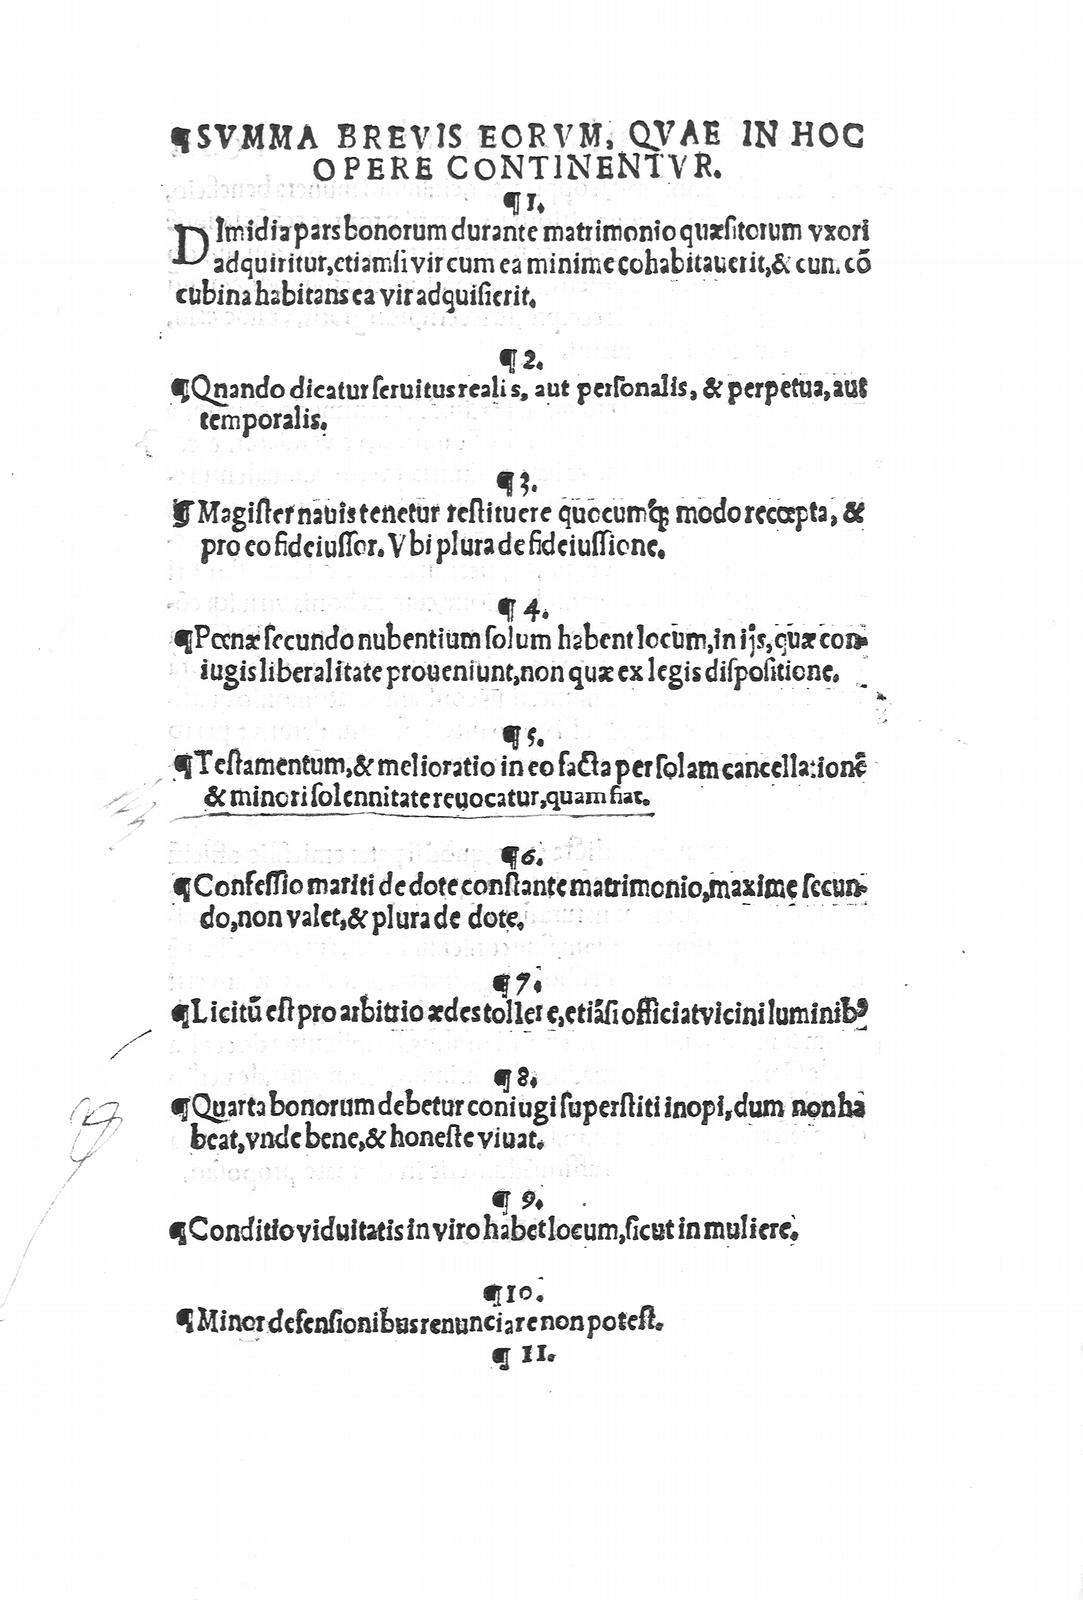 ¶SVMMA BREVIS EORVM, QVAE IN HOC
OPERE CONTINENTVR.
¶ 1.
DImidia pars bonorum durante matrimonio quæsitorum vxori
adquiritur,etiamsi vir cum ea minime cohabitauerit,& cum cō
cubina habitans ea vir adquisierit.
¶ 2.
¶Qnando dicatur seruitus realis, aut personalis, & perpetua, aut
temporalis.
¶ 3.
¶ Magister nauis tenetur restituere quocumq; modo recœpta, &
pro eo fideiussor. Vbi plura de fideiussione.
¶ 4.
¶Pœnæ secundo nubentium solum habent locum,in ijs,quæ con-
iugis liberalitate proueniunt,non quæ ex legis dispositione.
¶ 5.
¶Testamentum,& melioratio in eo facta per solam cancellationē
& minori solennitate reuocatur,quam fiat.
¶ 6.
¶Confessio mariti de dote constante matrimonio,maxime secun-
do,non valet,& plura de dote.
¶ 7.
¶Licitū est pro arbitrio ædes tollere,etiāsi officiat vicini luminibꝰ
¶ 8.
¶Quarta bonorum debetur coniugi superstiti inopi,dum non ha
beat,vnde bene,& honeste viuat.
¶ 9.
¶Conditio viduitatis in viro habet locum,sicut in muliere.
¶10.
¶Minor defensionibus renunciare non potest.
¶ 11.